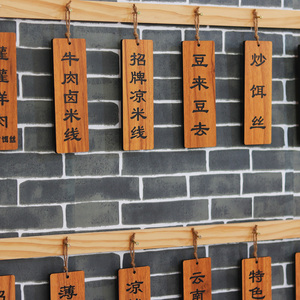 牛肉卤米线
招牌凉米线
豆来豆去
炒饵丝
薄
凉
云南
特色